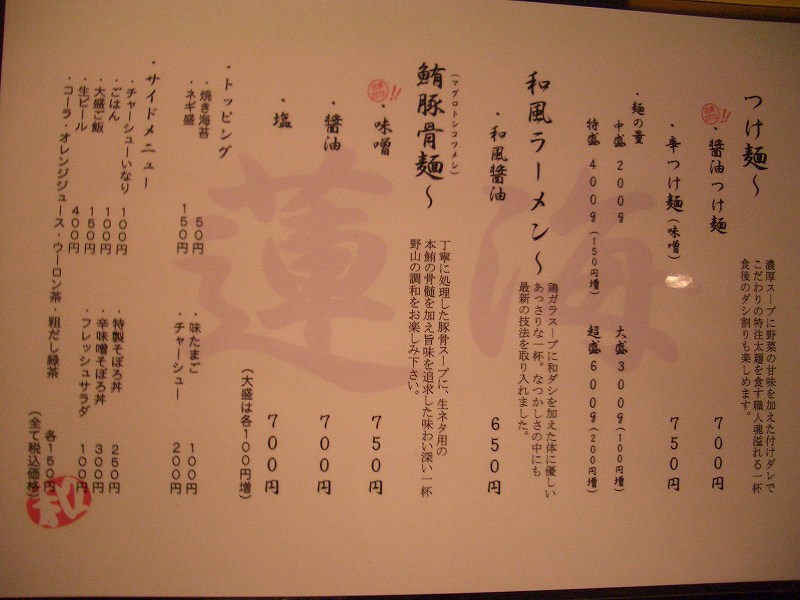 海蓮
つけ麺～
濃厚スープに野菜の甘味を加えた付けダレで
こだわりの特注太麺を食す職人魂溢れる一杯
食後のダシ割りも楽しめます。
・醤油つけ麺 700円
・辛つけ麺(味噌) 750円
・麺の量
中盛 200g 大盛 300g(100円増)
特盛 400g(150円増) 超盛 600g(200円増)
和風ラーメン～
鶏ガラスープに和ダシを加えた体に優しい
あっさりな一杯。なつかしさの中にも
最新の技法を取り入れました。
・和風醤油 650円
(マグロトンコツメン)
鮪豚骨麺～
丁寧に処理した豚骨スープに、生ネタ用の
本鮪の骨髄を加え旨味を追求した味わい深い一杯
野山の調和をお楽しみ下さい。
!!・味噌 750円
・醤油 700円
・塩 700円
(大盛は各100円増)
・トッピング
・焼き海苔 50円 ・味たまご 100円
・ネギ盛 150円 ・チャーシュー 200円
・サイドメニュー
・チャーシューいなり 100円 ・特製そぼろ丼 250円
・ごはん 100円 ・辛味噌そぼろ丼 300円
・大盛ご飯 150円 ・フレッシュサラダ 100円
・生ビール 400円
・コーラ・オレンジジュース・ウーロン茶・粗だし緑茶 各150円
(全て税込価格)